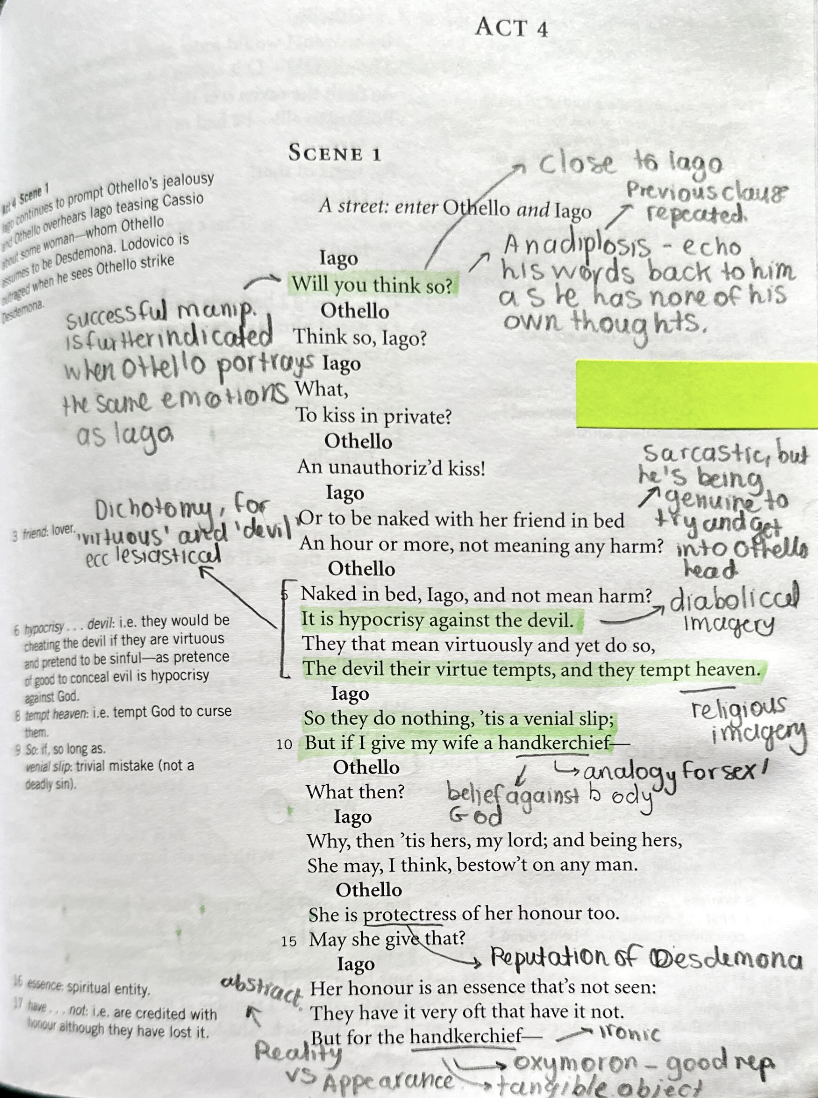 ACT 4
SCENE 1
Act 4 Scene 1
Iago continues to prompt Othello's jealousy
and Othello overhears Iago teasing Cassio
about some woman—whom Othello
assumes to be Desdemona. Lodovico is
outraged when he sees Othello strike
Desdemona.
A street: enter Othello and Iago
close to Iago
Previous clause
repeated.
Anadiplosis - echo
his words back to him
as he has none of his
own thoughts.
Iago
Will you think so?
Othello
Think so, Iago?
Iago
What,
To kiss in private?
Othello
An unauthoriz'd kiss!
Iago
Or to be naked with her friend in bed
An hour or more, not meaning any harm?
Othello
5 Naked in bed, Iago, and not mean harm?
It is hypocrisy against the devil.
They that mean virtuously and yet do so,
The devil their virtue tempts, and they tempt heaven.
Iago
So they do nothing, 'tis a venial slip;
10 But if I give my wife a handkerchief—
Othello
What then?
Iago
Why, then 'tis hers, my lord; and being hers,
She may, I think, bestow't on any man.
Othello
She is protectress of her honour too.
15 May she give that?
Iago
Her honour is an essence that's not seen:
They have it very oft that have it not.
But for the handkerchief—
successful manip.
is further indicated
when Othello portrays
the same emotions
as Iago
Dichotomy, for
'virtuous' and 'devil'
ecclesiastical
3 friend: lover.
6 hypocrisy . . . devil: i.e. they would be
cheating the devil if they are virtuous
and pretend to be sinful—as pretence
of good to conceal evil is hypocrisy
against God.
8 tempt heaven: i.e. tempt God to curse
them.
9 So: if, so long as.
venial slip: trivial mistake (not a
deadly sin).
16 essence: spiritual entity.
17 have . . . not: i.e. are credited with
honour although they have lost it.
sarcastic, but
he's being
genuine to
try and get
into Othello
head
diabolical
imagery
religious
imagery
analogy for sex/
body
belief against
God
Reputation of Desdemona
abstract
Reality
vs Appearance
ironic
oxymoron - good rep
tangible object